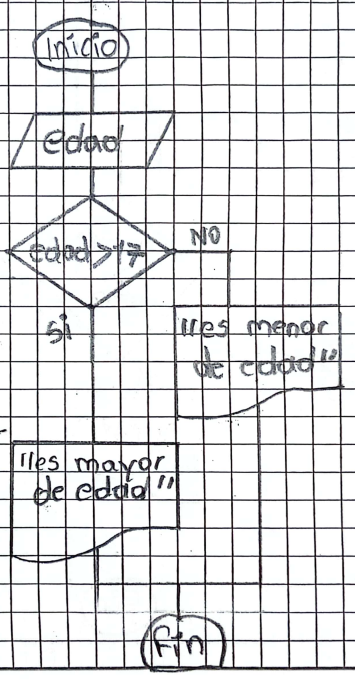 Inicio
edad
edad>17
NO
si
"es menor
de edad"
"es mayor
de edad"
Fin